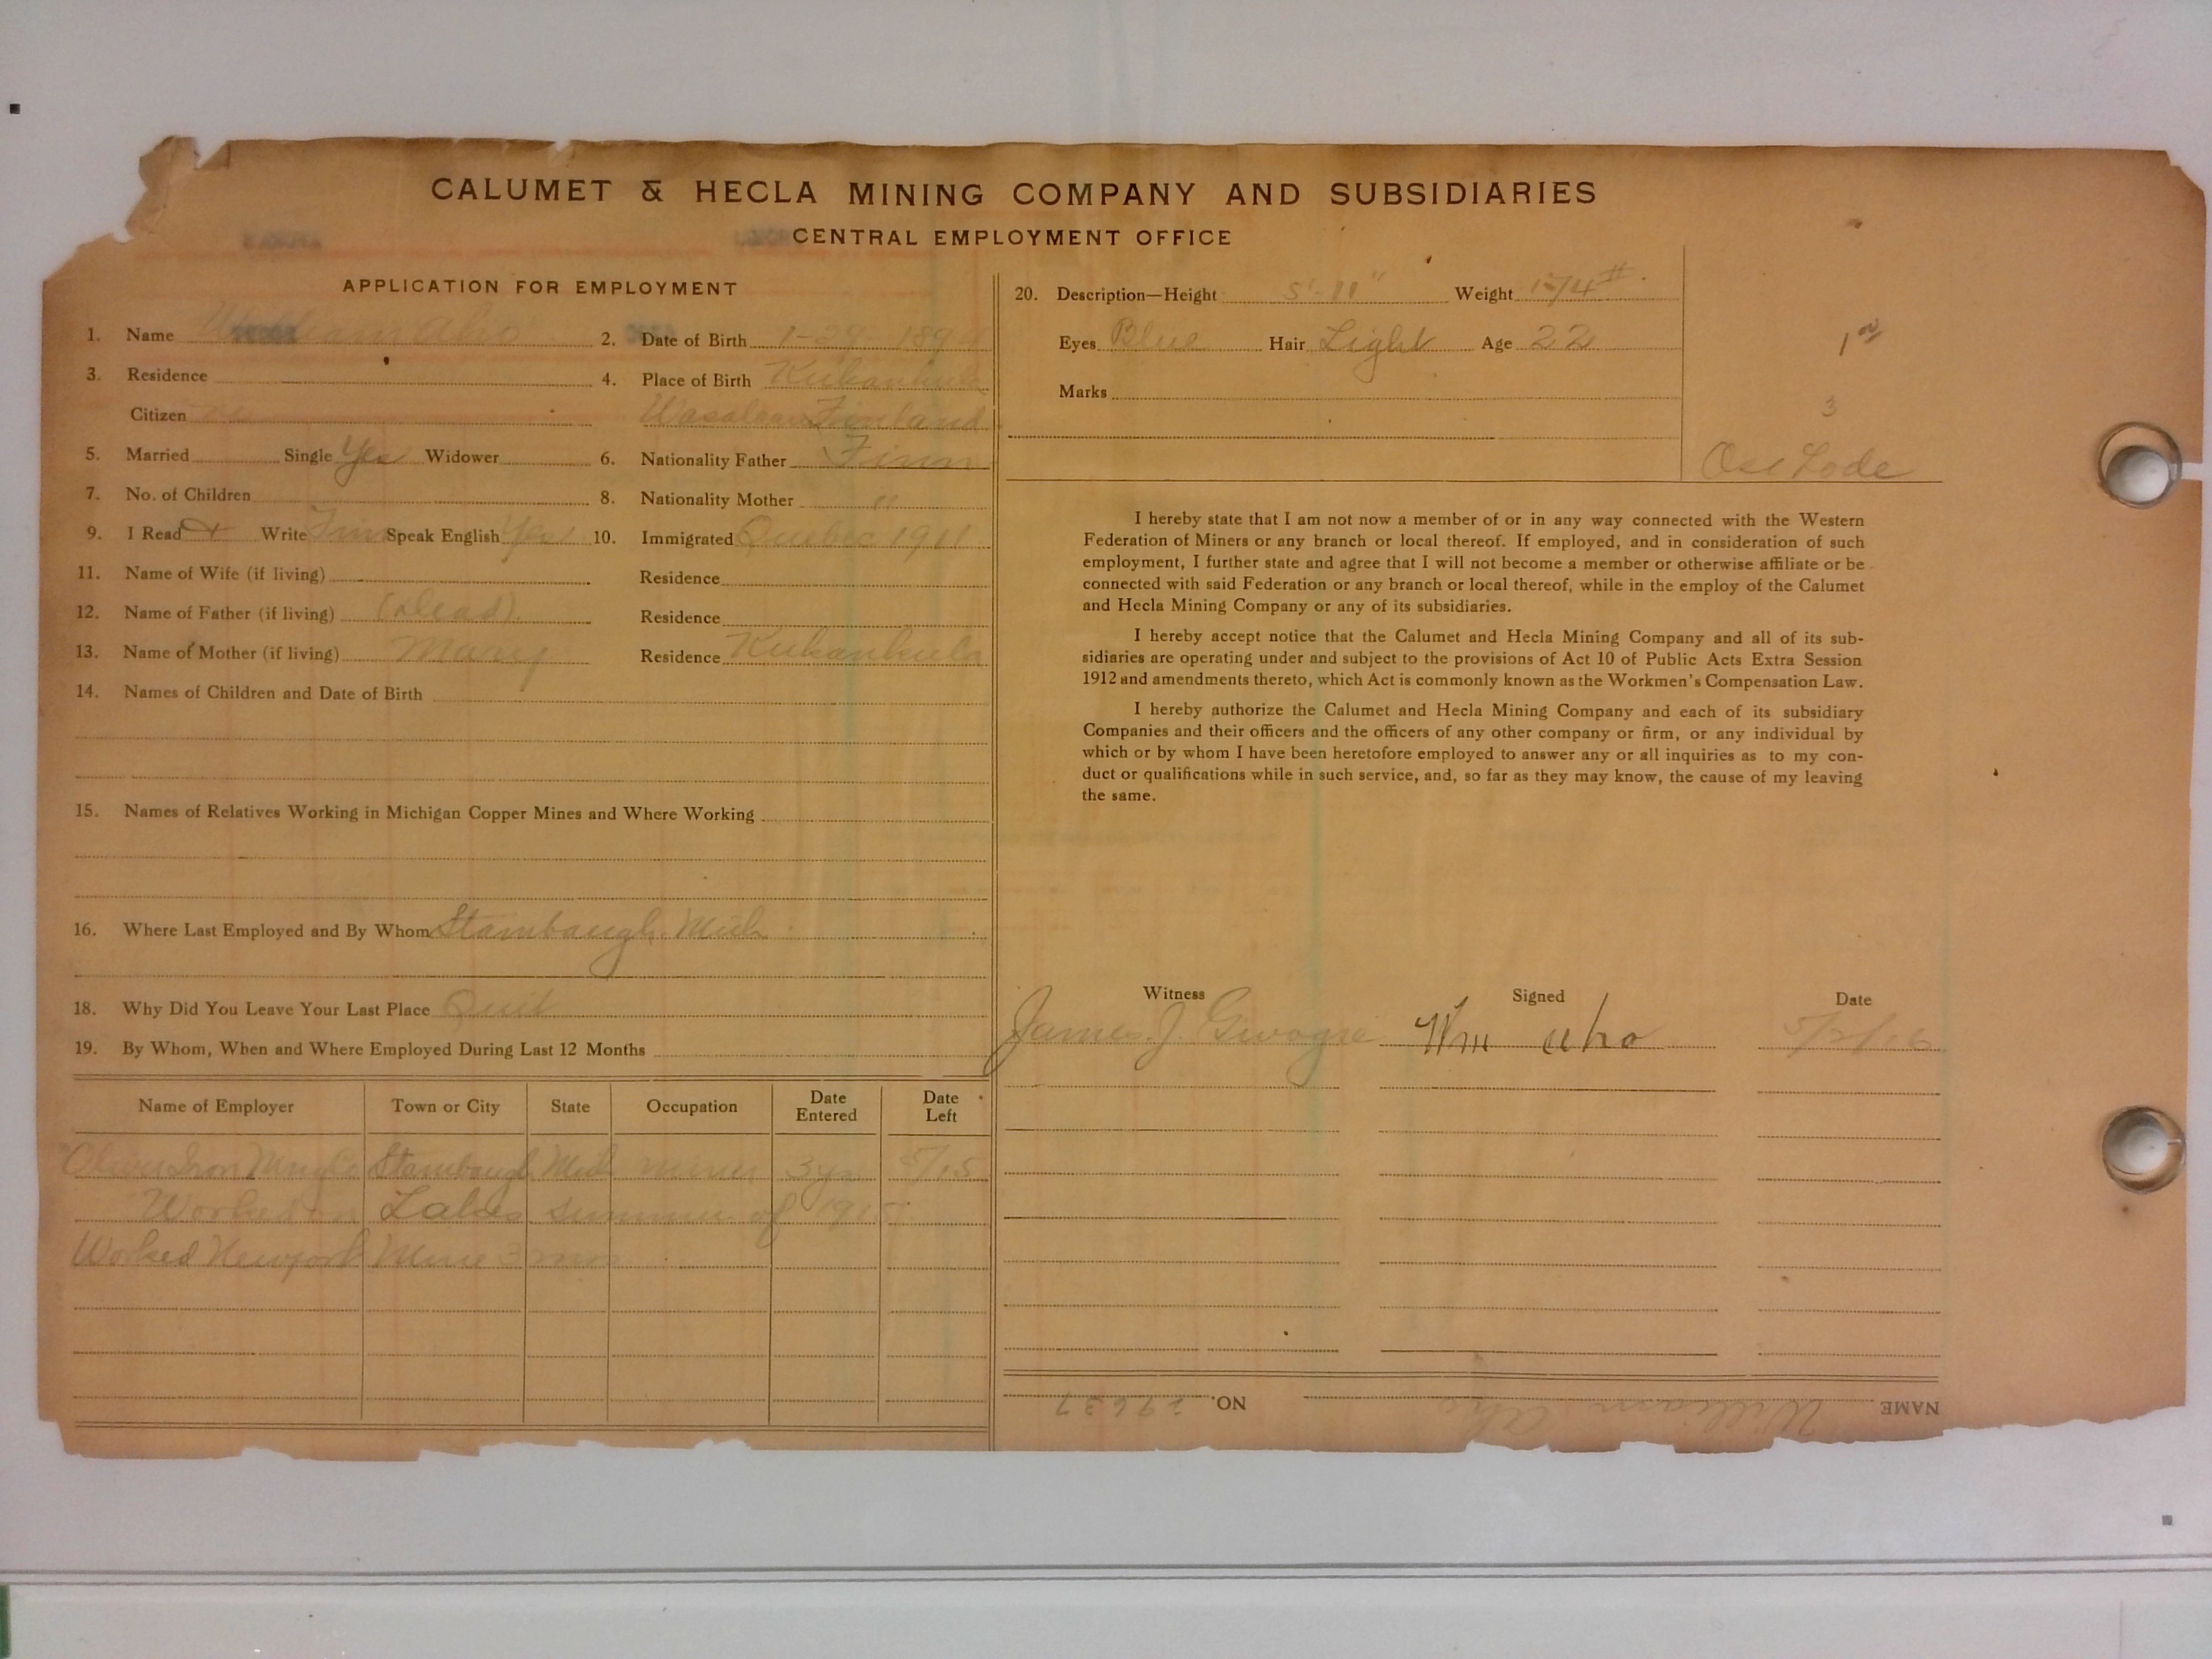 CALUMET & HECLA MINING COMPANY AND SUBSIDIARIES
CENTRAL EMPLOYMENT OFFICE
APPLICATION FOR EMPLOYMENT
1. Name William Aho 2. Date of Birth 1-29-1894
3. Residence 4. Place of Birth
Citizen Finland
5. Married Single Yes Widower 6. Nationality Father Finn
7. No. of Children 8. Nationality Mother "
9. I Read + Write Finn Speak English Yes 10. Immigrated Quebec 1911
11. Name of Wife (if living) Residence
12. Name of Father (if living) (Dead) Residence
13. Name of Mother (if living) Mary Residence
14. Names of Children and Date of Birth
15. Names of Relatives Working in Michigan Copper Mines and Where Working
16. Where Last Employed and By Whom Stambaugh Mich
18. Why Did You Leave Your Last Place Quit
19. By Whom, When and Where Employed During Last 12 Months
Name of Employer Town or City State Occupation Date Entered Date Left
Oliver Iron Mng Co Stambaugh Mich miner 3 yrs 5/15
Worked on Lakes summer of 1915
Worked Newyork Mine 3 mos
20. Description—Height 5'-11" Weight 174#
Eyes Blue Hair Light Age 22
Marks
3
Osc Lode
I hereby state that I am not now a member of or in any way connected with the Western
Federation of Miners or any branch or local thereof. If employed, and in consideration of such
employment, I further state and agree that I will not become a member or otherwise affiliate or be
connected with said Federation or any branch or local thereof, while in the employ of the Calumet
and Hecla Mining Company or any of its subsidiaries.
I hereby accept notice that the Calumet and Hecla Mining Company and all of its sub-
sidiaries are operating under and subject to the provisions of Act 10 of Public Acts Extra Session
1912 and amendments thereto, which Act is commonly known as the Workmen's Compensation Law.
I hereby authorize the Calumet and Hecla Mining Company and each of its subsidiary
Companies and their officers and the officers of any other company or firm, or any individual by
which or by whom I have been heretofore employed to answer any or all inquiries as to my con-
duct or qualifications while in such service, and, so far as they may know, the cause of my leaving
the same.
Witness Signed Date
James J. Wm Aho 5/2/16
NAME William Aho NO. 29637